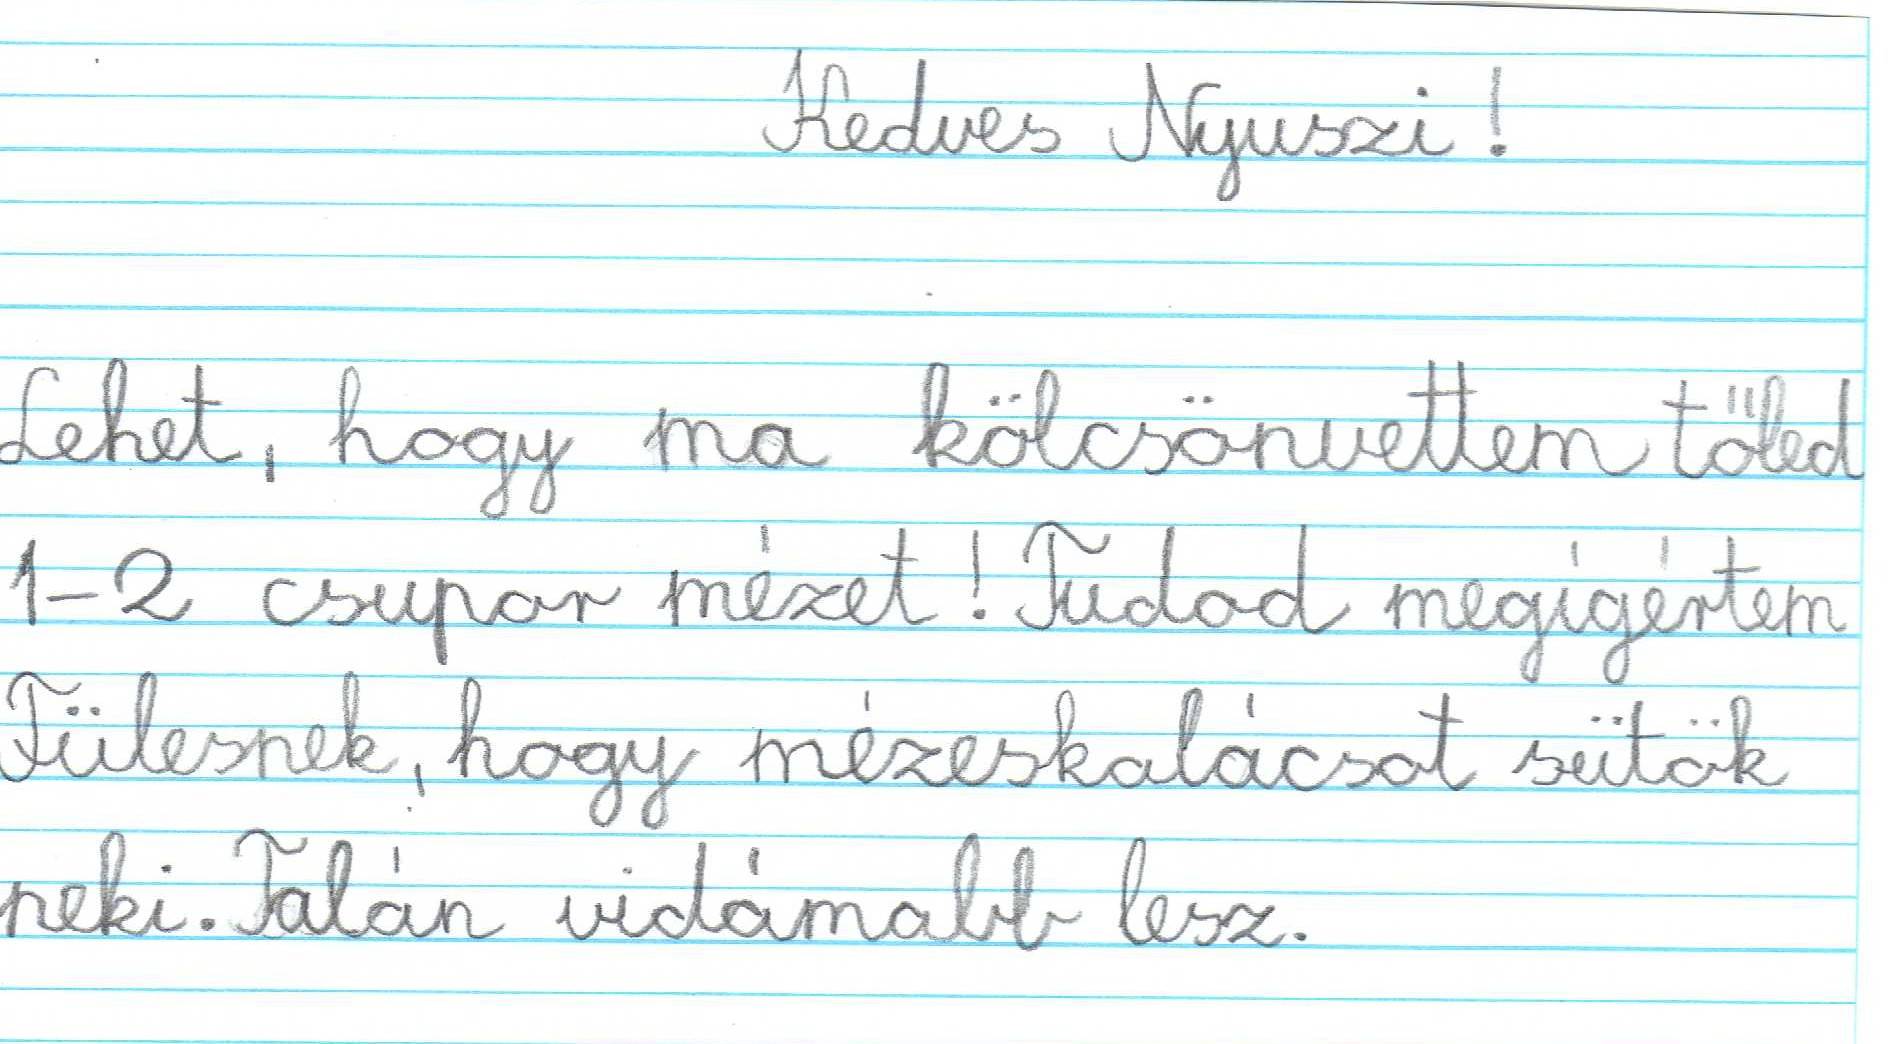 Kedves Nyuszi!
Lehet, hogy ma kölcsönvettem tőled
1-2 csupor mézet! Tudod megígértem
Fülesnek, hogy mézeskalácsot sütök
neki. Talán vidámabb lesz.